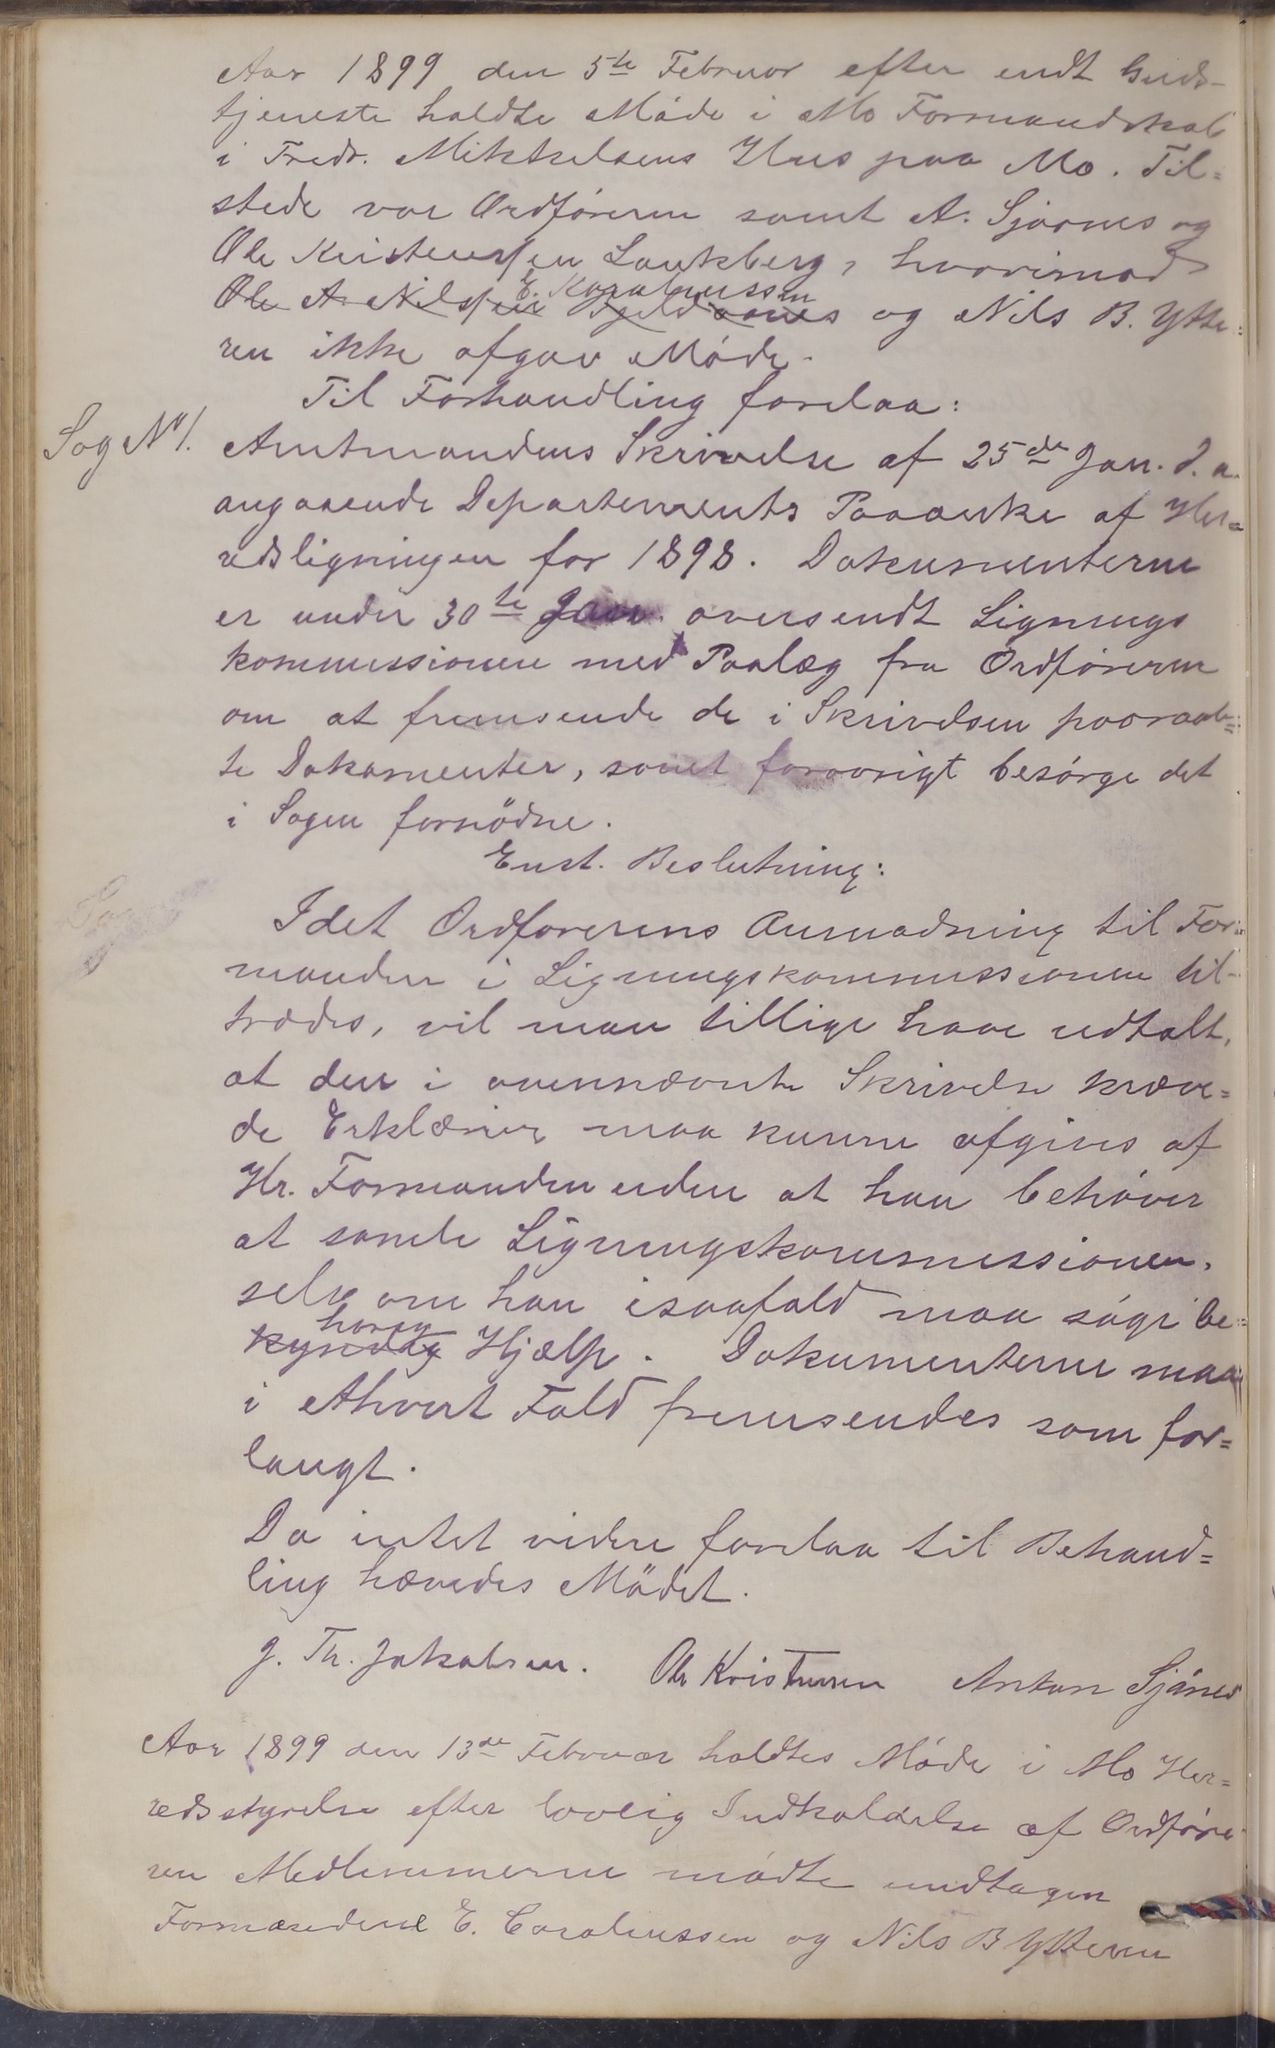 Aar 1899 den 5te Februar efter endt Guds-
tjeneste holdte Møde i Mo Formandskab
i Fredr. Mikkelsens Hus paa Mo. Til=
stede var Ordføreren samt A. Sjaanes og
Ole Kristenssen Lankberg, hvorimod
E. Karolinussen
Ole A. Nilssen og Nils B. Ytte=
ren ikke afgav Møde.
Til Forhandling forelaa:
Sag No 1. Amtmandens Skrivelse af 25de Jan. d. a.
angaaende Departements Paaanke af Her=
redsligningen for 1898. Dokumenterne
er under 30te Jan. oversendt Lignings
kommissionen med Paalæg fra Ordføreren
om at fremsende de i Skrivelsen paaraab=
te Dokumenter, samt forøvrigt besørge det
i Sagen fornødne.
Enst. Beslutning:
Idet Ordførerens Anmodning til For=
manden i Ligningskommissionen til-
trædes, vil man tillige have udtalt,
at den i ovennævnte Skrivelse kræve=
de Erklæring maa kunne afgives af
Hr. Formanden uden at han behøver
at samle Ligningskommissionen,
selv om han isaafald maa søge be=
kyndig Hjælp. Dokumenterne maa
i ethvert Fald fremsendes som for=
langt.
Da intet videre forelaa til Behand=
ling hævedes Mødet.
J. Th. Jakobsen. Ole Kristensen Anton Sjånes
Aar 1899 den 13de Februar holdtes Møde i Mo Her=
redsstyrelse efter lovlig Indkaldelse af Ordføre
ren Medlemmerne mødte undtagen
Formændene E. Carolinussen og Nils B Ytteren